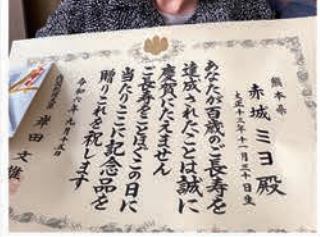 熊本県
赤城ミヨ殿
大正十三年十一月三十日生
あなたが百歳のご長寿を
達成されたことは誠に
慶賀にたえません
ご長寿をことほぐこの日に
当たりここに記念品を
贈りこれを祝します
令和六年九月十五日
内閣総理大臣
岸田文雄